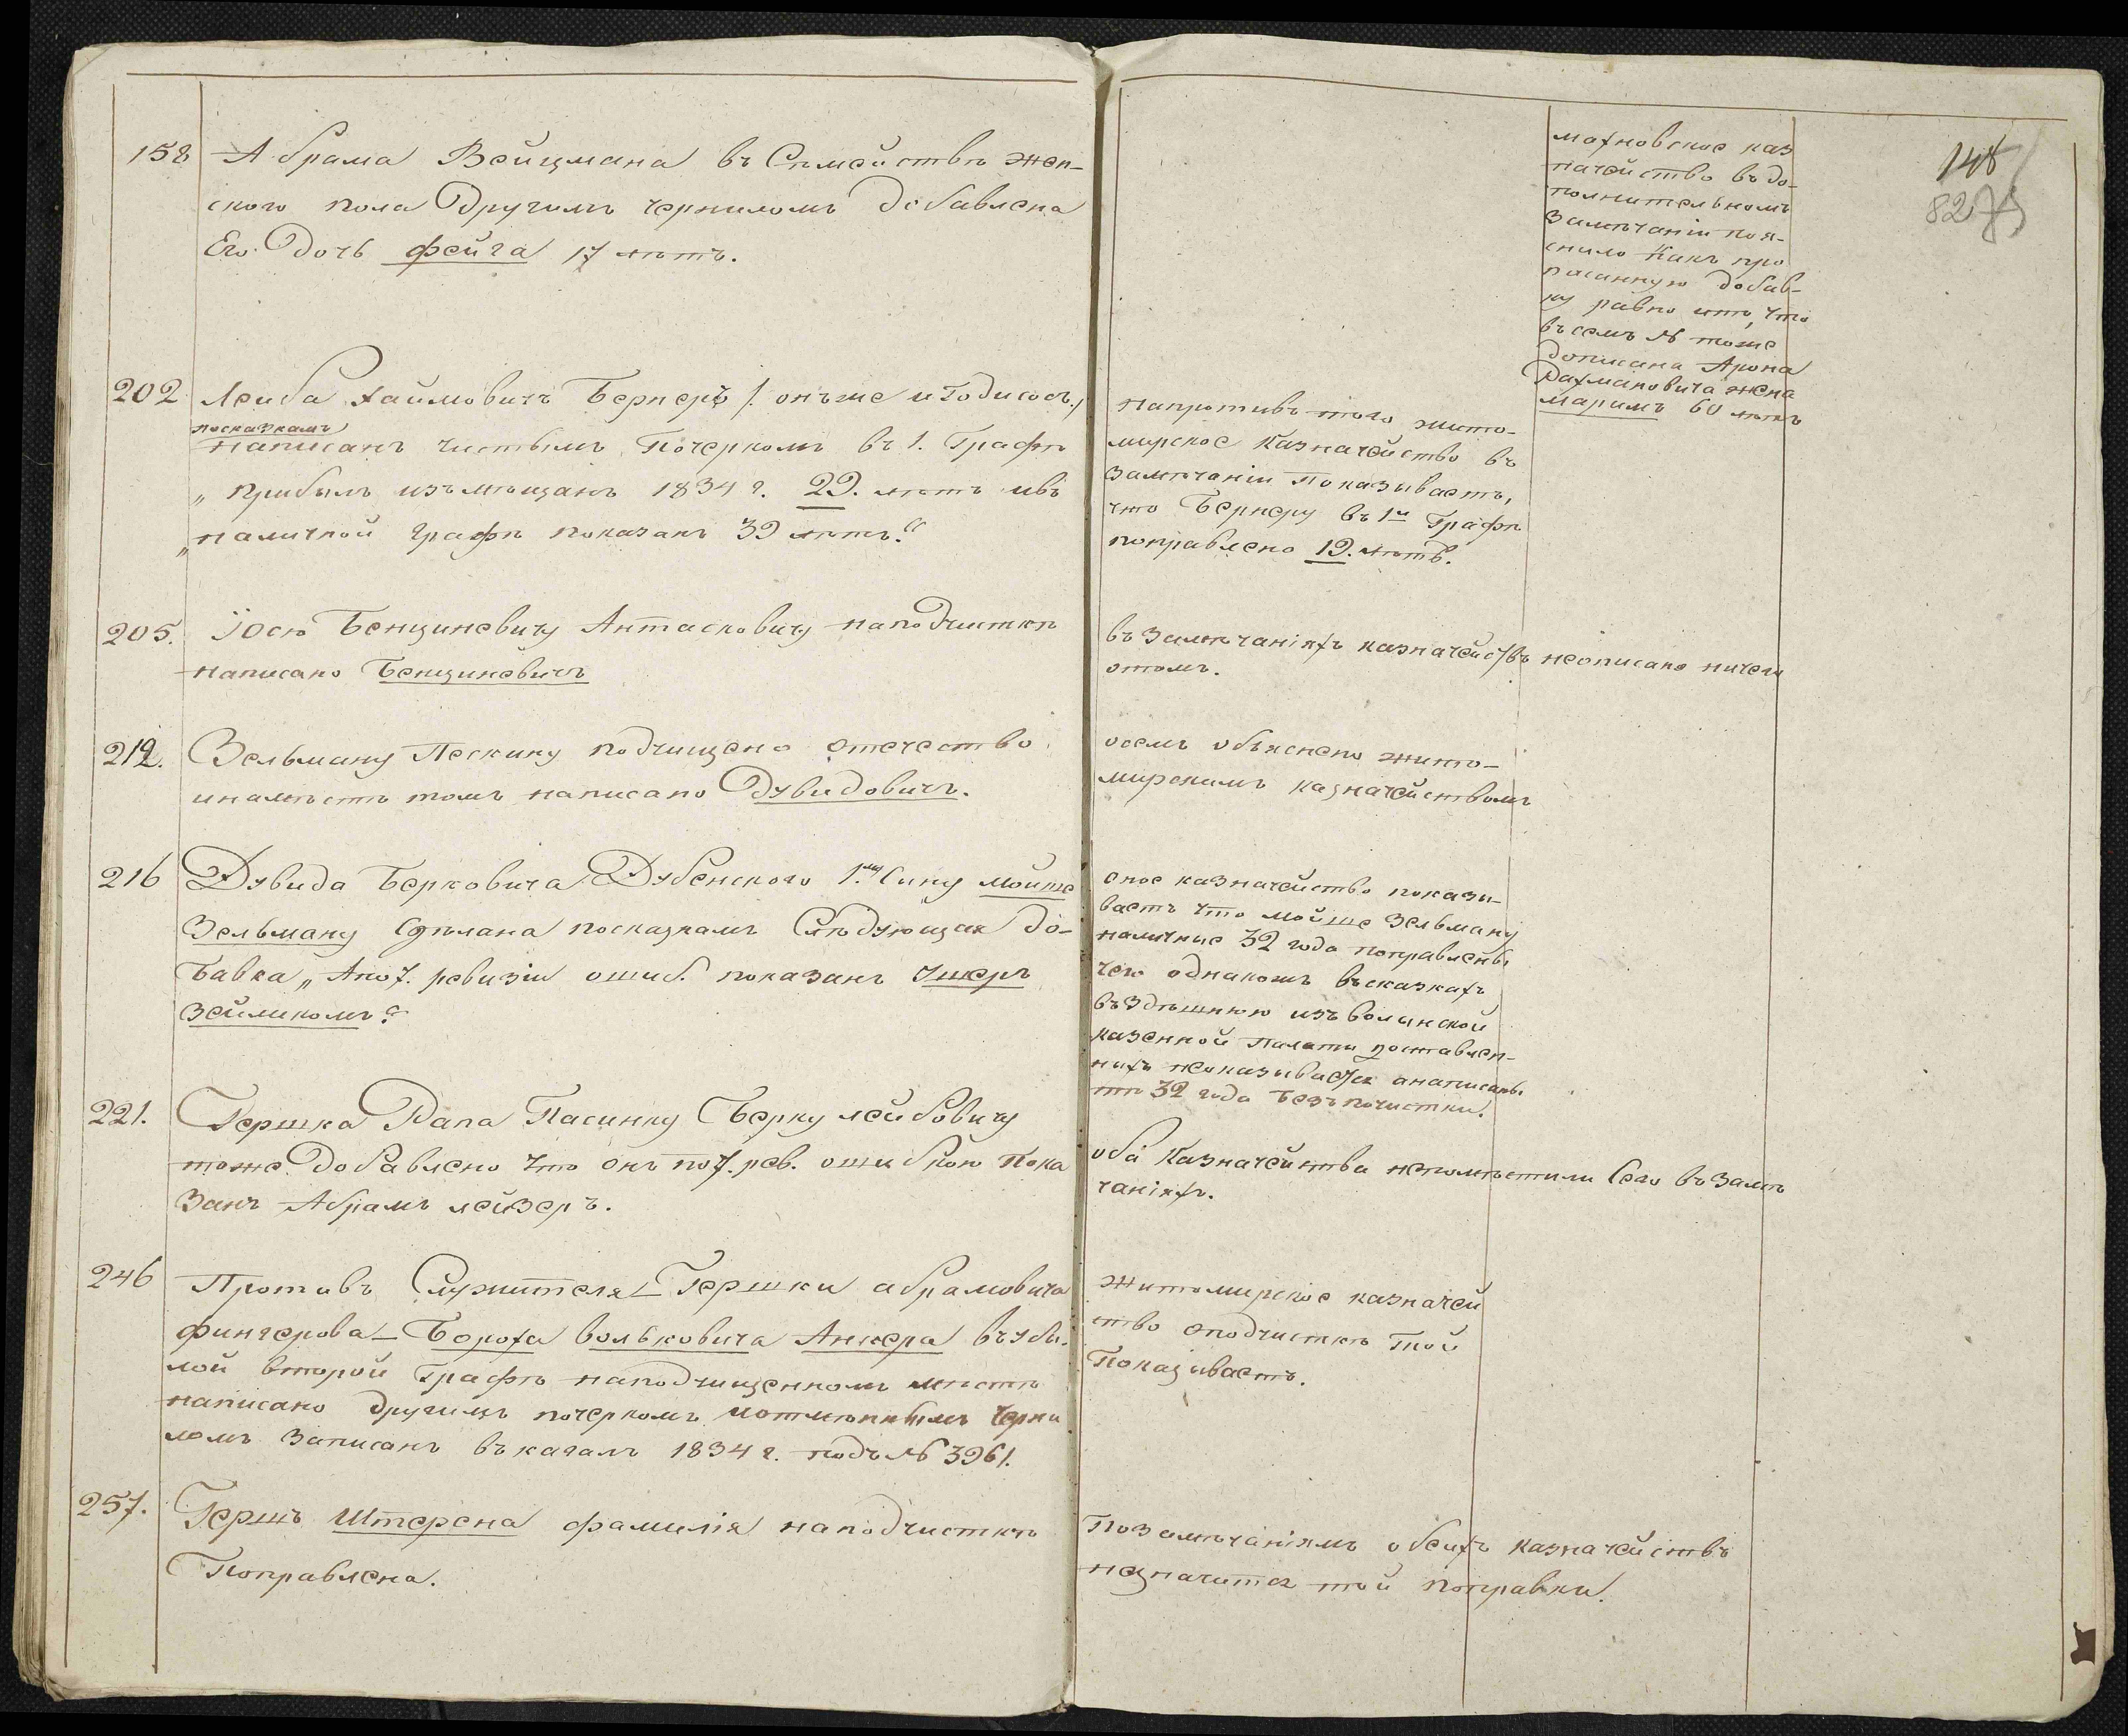 158 Абрама Вейцмана въ Семействѣ жен-
ского пола Другимъ чернилomъ добавлена
Его Дочь фейга 17 лѣтъ.
202 Лейба Хаймовичъ Бернеръ /: онъже и Годисось./
посказкамъ
написанъ чистымъ Почеркомъ въ 1. Графѣ
„ прибылъ изъ мѣщанъ 1834 г. 29. лѣтъ ивъ
„ наличной графѣ показанъ 39 лѣтъ."
205. Іосю Бенциневичу Антасковичу наподчисткѣ
написано Бенциневичъ
212. Зельману Пескину подчищено отечество
инамѣстѣ томъ написано Дувидовичъ.
216 Дувида Берковича Дубенского 1.му Сину мойше
Зельману Сдѣлана посказкамъ Слѣдующая до-
бавка „ Апо 7. ревизіи ошиб. показанъ Ушеръ
Зейликомъ"
221. Гершка Рапа Пасинку Берку лейбовичу
тоже Добавлено Что онъ по 7. рев. ошибкою Пока
Занъ Абрамъ лейзеръ.
246 Противъ Служителя Гершки абрамовича
фингерова – Бороха вольковича Анкера въ убы-
лой второй Графѣ наподчищенномъ мѣстѣ
написано другимъ почеркомъ иотмѣннымъ Черни
ломъ Записанъ въ кагалъ 1834 г. подъ № 3961.
257. Гершъ Штерена фамилія наподчисткѣ
Поправлена.
махновское каз
начейство въ до-
полнительномъ
Замѣчаніи поя-
снило Какъ про
писанную добав-
ку равно ито, что
въ семъ № тоже
дописана Арона
Рахмановича жена
маримъ 60 лѣтъ
148
82
75
Напротивъ того жито-
мирское Казначейство въ
Замѣчаніи Показываетъ,
что Бернеру въ 1й Графѣ
поправлено 19. лѣтъ.
въ Замѣчаніяхъ казначействъ неописано ничего
отомъ.
осемъ объяснено жито-
мирскимъ казначействомъ
оное казначейство показы-
ваетъ что мойше Зельману
наличные 32 года поправлены
чего однакожъ въ сказкахъ
въ здѣшнюю изъ волынской
казенной палаты доставлен-
ныхъ неоказывается анаписаны
тѣ 32 года безъ почистки.
оба Казначейства непомѣстили Сего въ Замѣ
чаніяхъ.
житомирское казначей
ство оподчисткѣ той
Показываетъ.
По замѣчаніямъ обеихъ казначействъ
незначится той поправки.